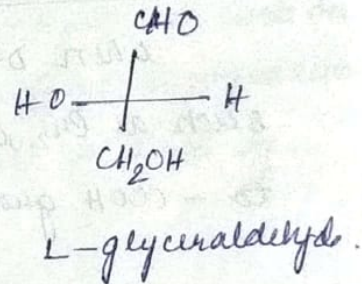 CHO
HO H
CH₂OH
L-glyceraldehyde.